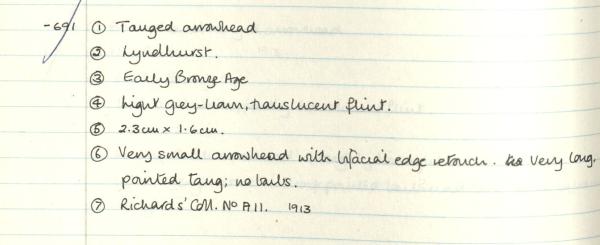 -691 ① Tanged arrowhead
② Lyndhurst.
③ Early Bronze Age
④ Light grey-brown, translucent flint.
⑤ 2.3cm × 1.6cm.
⑥ Very small arrowhead with bifacial edge retouch. Very long,
pointed tang; no barbs.
⑦ Richards' Coll. No A11. 1913